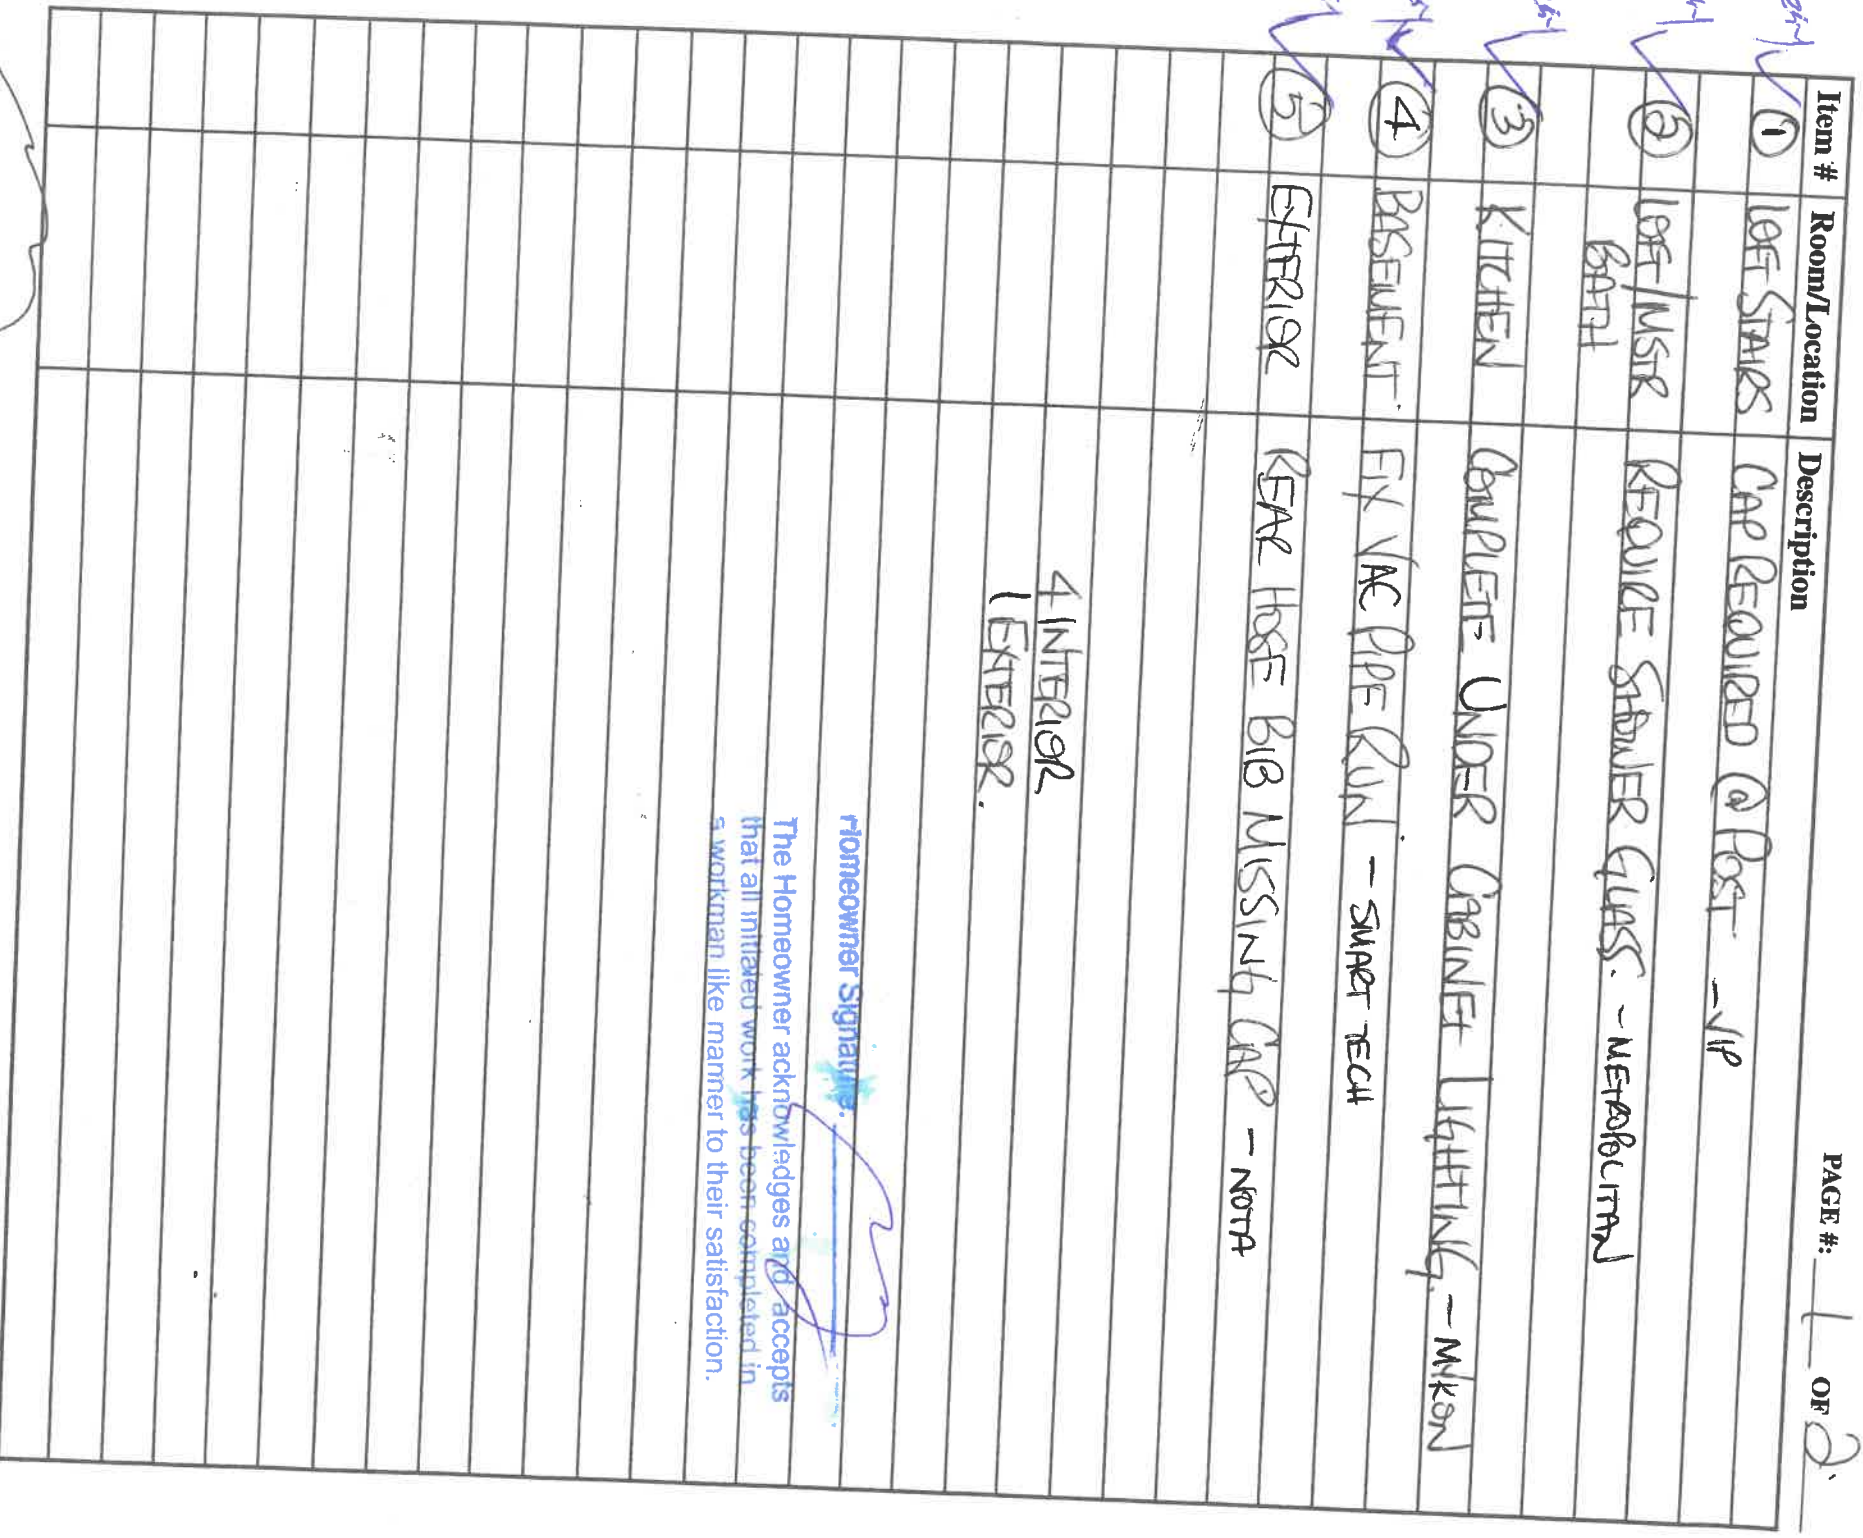 PAGE #: 1 OF 2
Item # Room/Location Description
1 LOFT STAIRS CAP REQUIRED @ POST - VIP
2 LOFT/MSTR REQUIRE SHOWER GLASS. - METROPOLITAN
BATH
3 KITCHEN COMPLETE UNDER CABINET LIGHTING - MIKON
4 BASEMENT. FIX VAC PIPE RUN. - SMART TECH
5 EXTERIOR REAR HOSE BIB MISSING CAP - NOTA
4 INTERIOR
1 EXTERIOR.
Homeowner Signature:
The Homeowner acknowledges and accepts
that all initialed work has been completed in
a workman like manner to their satisfaction.